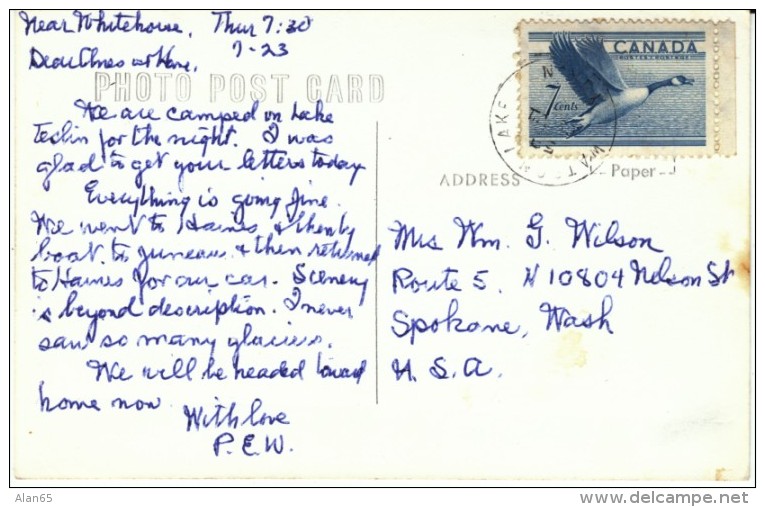 Near Whitehorse, Thur 7:30
7-23
Dear Ones at Home,
PHOTO POST CARD
We are camped on Lake
Teslin for the night. I was
glad to get your letters today
Everything is going fine.
We went to Haines, & then by
boat to Juneau & then returned
to Haines for our car. Scenery
is beyond description. I never
saw so many glaciers.
We will be headed toward
home now
With love
P.E.W.
CANADA
7 cents
LAKE
WATSON
ADDRESS
Paper
Mrs Wm. G. Wilson
Route 5, N 10804 Nelson St
Spokane, Wash
U.S.A.
Alan65
http://www.delcampe.net